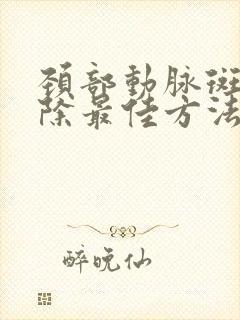 頚部動脉斑
除最佳方法
醉晚仙